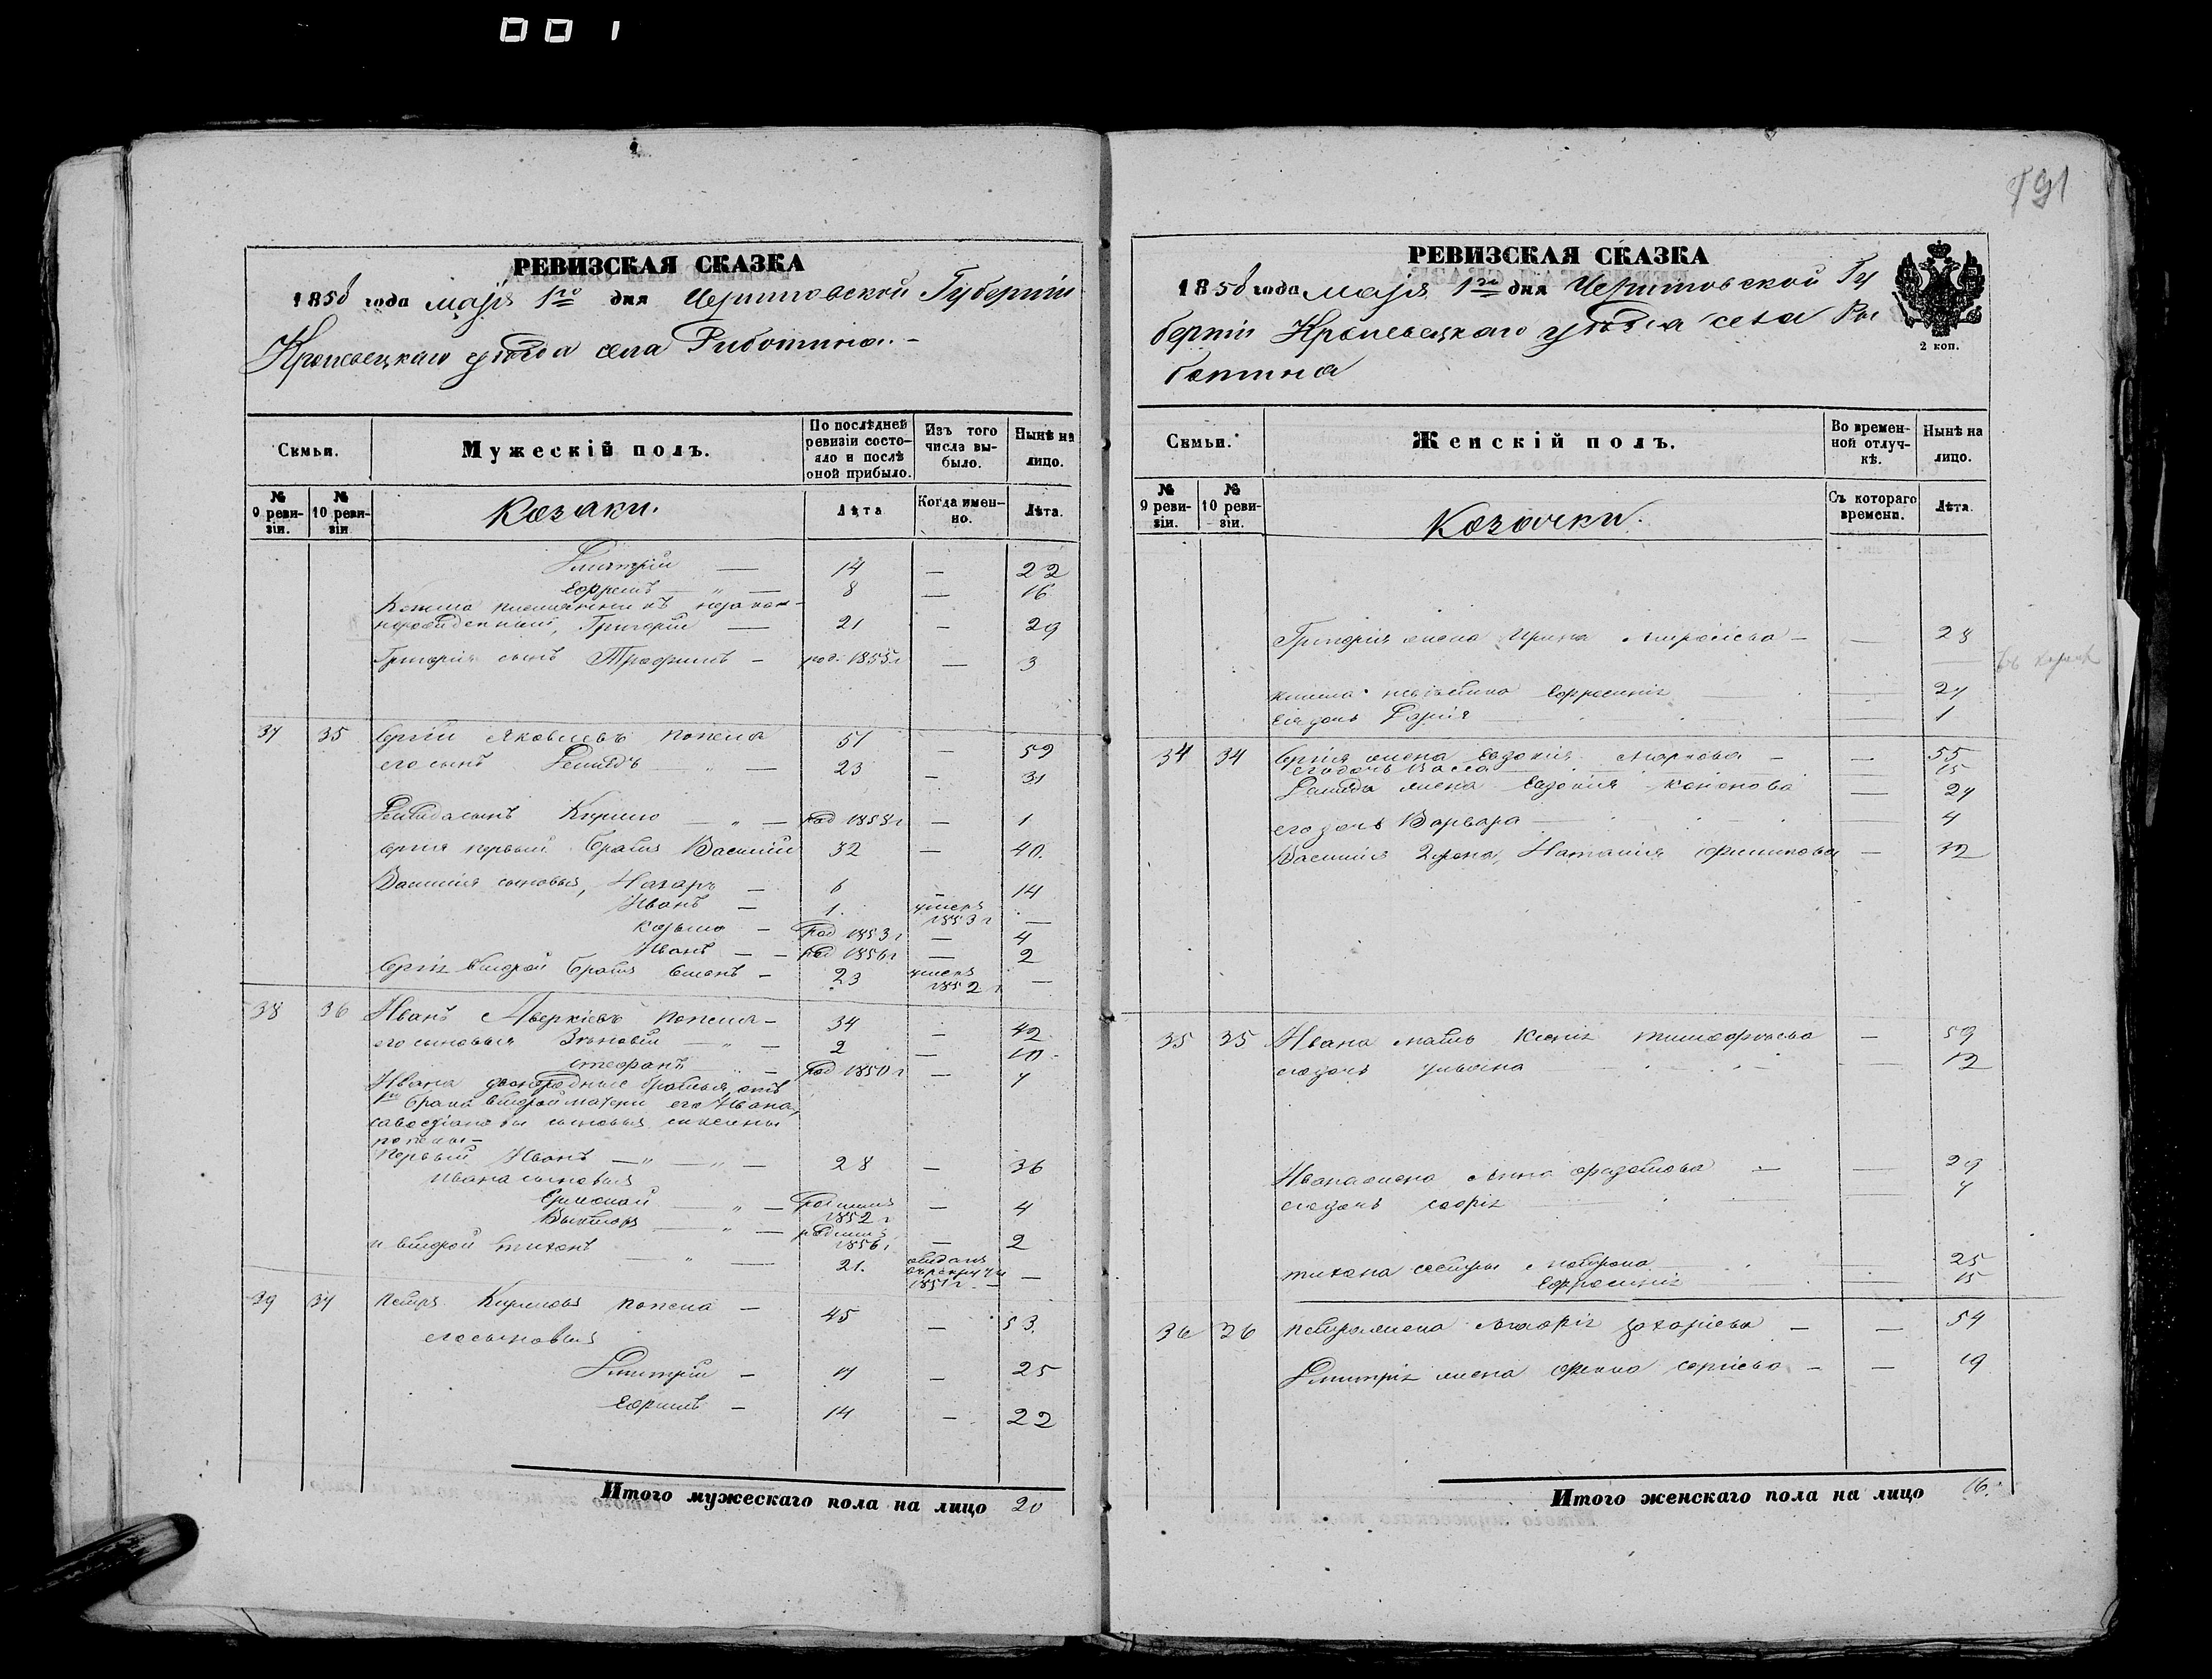 001
РЕВИЗСКАЯ СКАЗКА
1858 года маія 1го дня Черниговской Губерніи
Кролевецкаго уѣзда села Риботина. -
Семьи.
Мужескій полъ.
По послѣдней ревизіи состояло и послѣ оной прибыло.
Изъ того числа выбыло.
Нынѣ на лицо.
№ 9 ревизіи.
№ 10 ревизіи
Козаки.
Лѣта
Когда именно.
Лѣта.
Дмитрій — 14 — 22
Ефремъ — " — 8 — 16
племянникъ незакон-
норожденный, Григорій — 21 — 29
Григорія сынъ Трофимъ — род. 1855 г — 3
37 35 Сергій Яковлевъ Попека 51 — 59
его сынъ Демидъ — " — 23 — 31
Демида сынъ Кирило — " — род 1858 г — 1
Сергія первый братъ Василій 32 — 40.
Василія сыновья, Назаръ — 6 — 14
Иванъ — 1. умеръ 1853 г —
Козьма — род 1853 г — 4
Иванъ — род 1856 г — 2
Сергія второй братъ Симонъ — 23 умеръ 1852 г —
38 36 Иванъ Аверкіевъ Попека — 34 — 42
его сыновья Зѣновій — " — 2 — 10.
Стефанъ — род 1850 г — 7
Ивана двоюродные братья, отъ
1го брака второй матери его Ивана,
сыновья
Попеки —
первый Иванъ — " — " — 28 — 36
Ивана сыновья
— " — родился 1852 г — 4
Викторъ — " — родился 1856 г — 2
и второй Тихонъ — " — 21. отданъ въ рекруты 1851 г — —
39 37 Петръ Кириловъ Попека — 45 — 53.
его сыновья
Дмитрій — 17 — 25
Ефремъ — 14 — 22
Итого мужескаго пола на лицо 20
791
РЕВИЗСКАЯ СКАЗКА
1858 года маія 1го дня Черниговской Гу
берніи Кролевецкаго уѣзда села Ри
ботина
2 коп.
Семьи.
Женскій полъ.
Во временной отлучкѣ.
Нынѣ на лицо.
№ 9 ревизіи.
№ 10 ревизіи.
Козачки.
Съ котораго времени.
Лѣта.
Григорія жена Ирина — — 28
невѣстка Ефросинія — 27
ея дочь Дарія — 1
34 34 Сергія жена Евдокія Маркова — — 55
его дочь Васса — 15
Демида жена Евдокія Кононова — 27
его дочь Варвара — 4
Василія 2 жена, Наталія Филипова — 32
35 35 Ивана мать Ксенія Тимофѣева — 59
его дочь Ульяна — 12
Ивана жена Анна — — 29
его дочь Софія — 7
Тихона сестры Мотрона 25
Ефросинія — 15
36 36 Петра жена Агафія Захаріева — — 54
Дмитрія жена Фекла Сергіева — — 19
Итого женскаго пола на лицо 16.